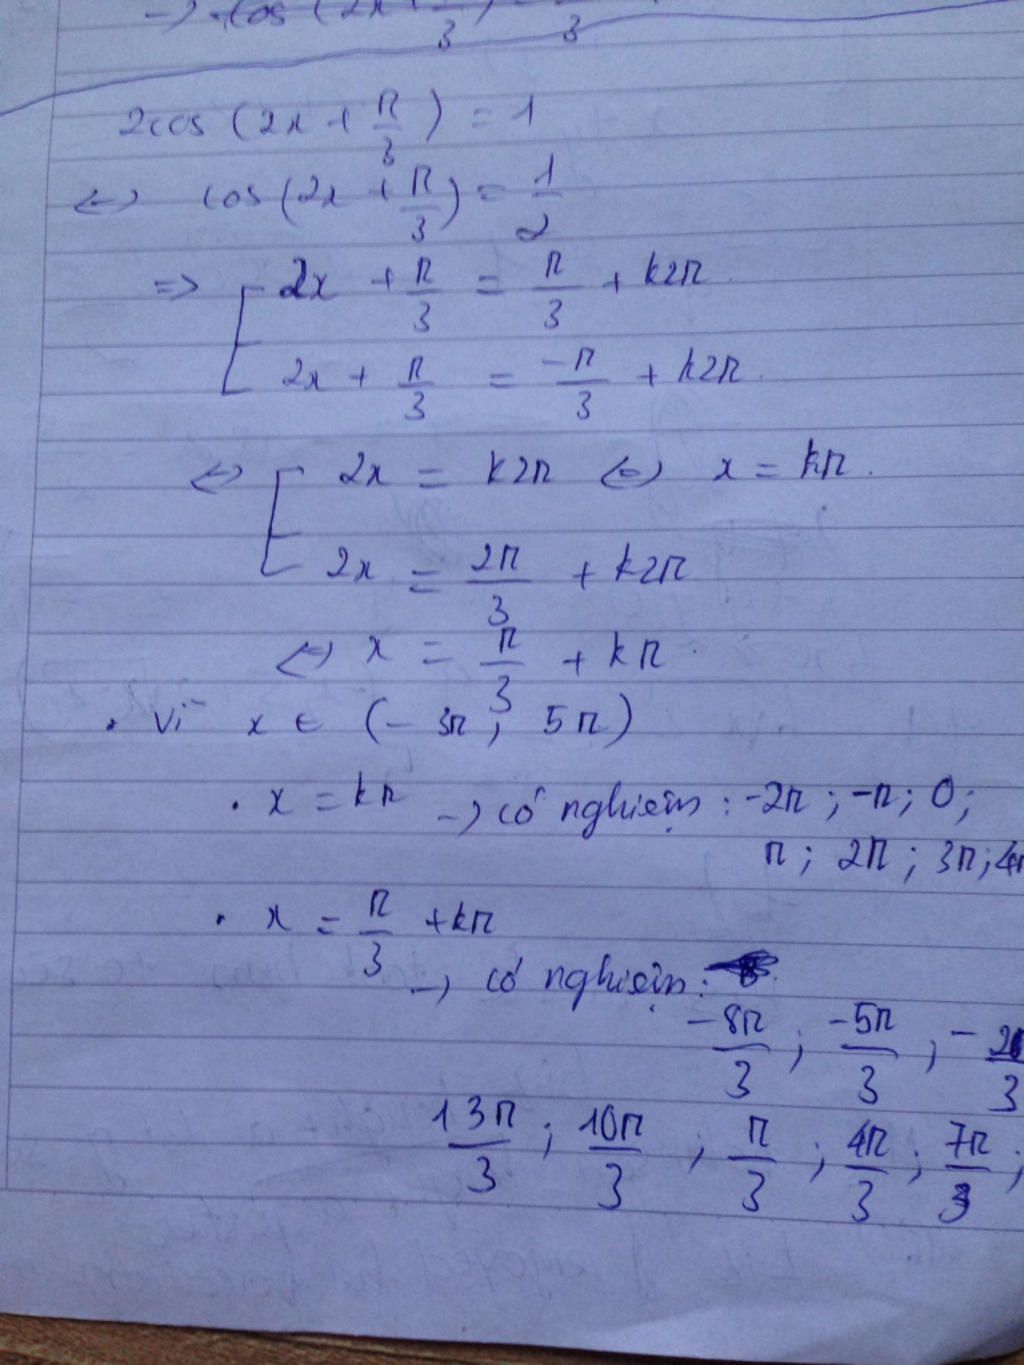 → cos (2x + π/3)
2cos (2x + π/3) = 1
⇔ cos (2x + π/3) = 1/2
⇒ [ 2x + π/3 = π/3 + k2π.
2x + π/3 = -π/3 + k2π.
⇔ [ 2x = k2π ⇔ x = kπ.
2x = 2π/3 + k2π
⇔ x = π/3 + kπ.
. Vì x ∈ (-3π; 5π)
. x = kπ → có nghiệm: -2π; -π; 0;
π; 2π; 3π; 4π
. x = π/3 + kπ
→ có nghiệm:
-8π/3; -5π/3; -2π/3
13π/3; 10π/3; π/3; 4π/3; 7π/3;